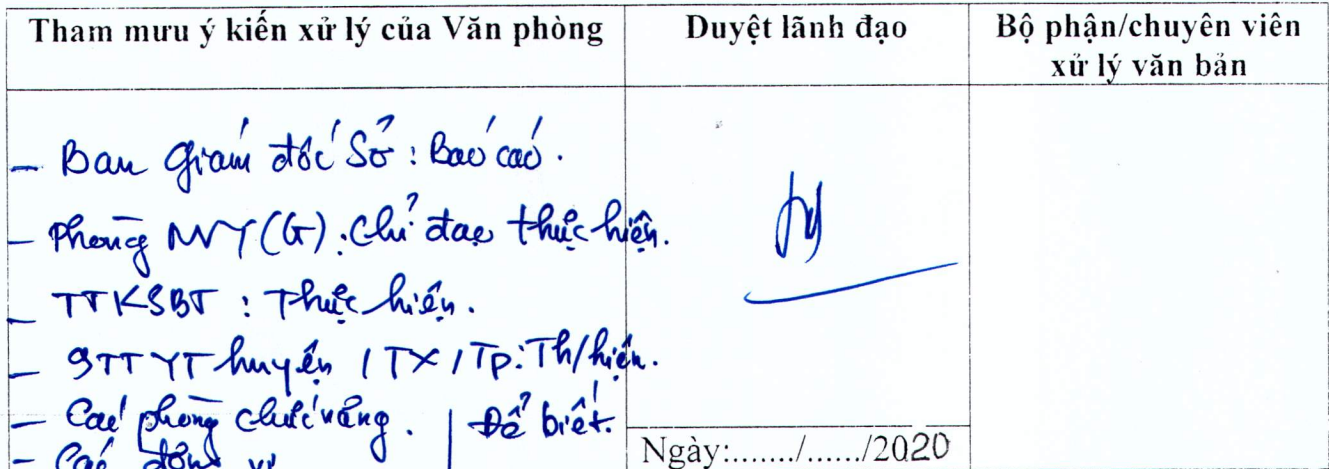 Tham mưu ý kiến xử lý của Văn phòng
Duyệt lãnh đạo
Bộ phận/chuyên viên
xử lý văn bản
- Ban Giám đốc Sở : Báo cáo.
- Phòng NVY (G). Chỉ đạo thực hiện.
- TTKSBT : Thực hiện.
- 9TTYT huyện / TX / Tp: Th/hiện.
- Các phòng chức năng. | Để biết.
- Các đơn vị
Ngày:......./....../2020